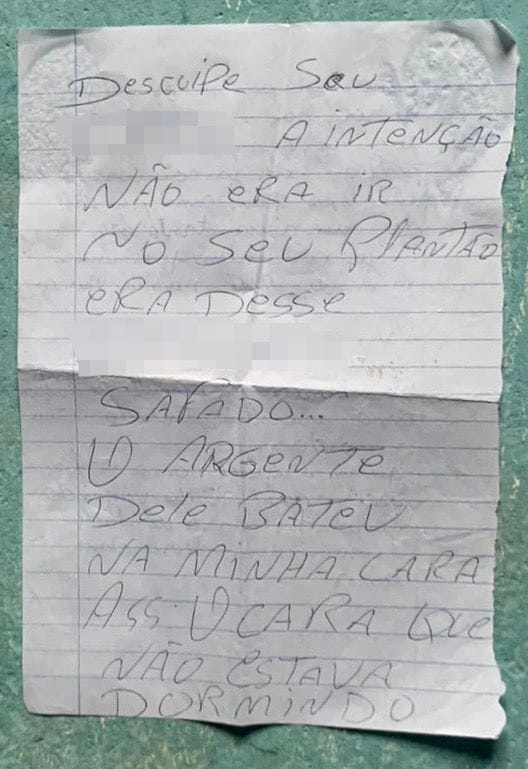 Desculpe Seu
A INTENÇÃO
NÃO ERA IR
NO SEU PLANTÃO
ERA DESSE
SAFADO...
O ARGENTE
Dele BATEU
NA MINHA CARA
ASS: O CARA QUE
NÃO ESTAVA
DORMINDO